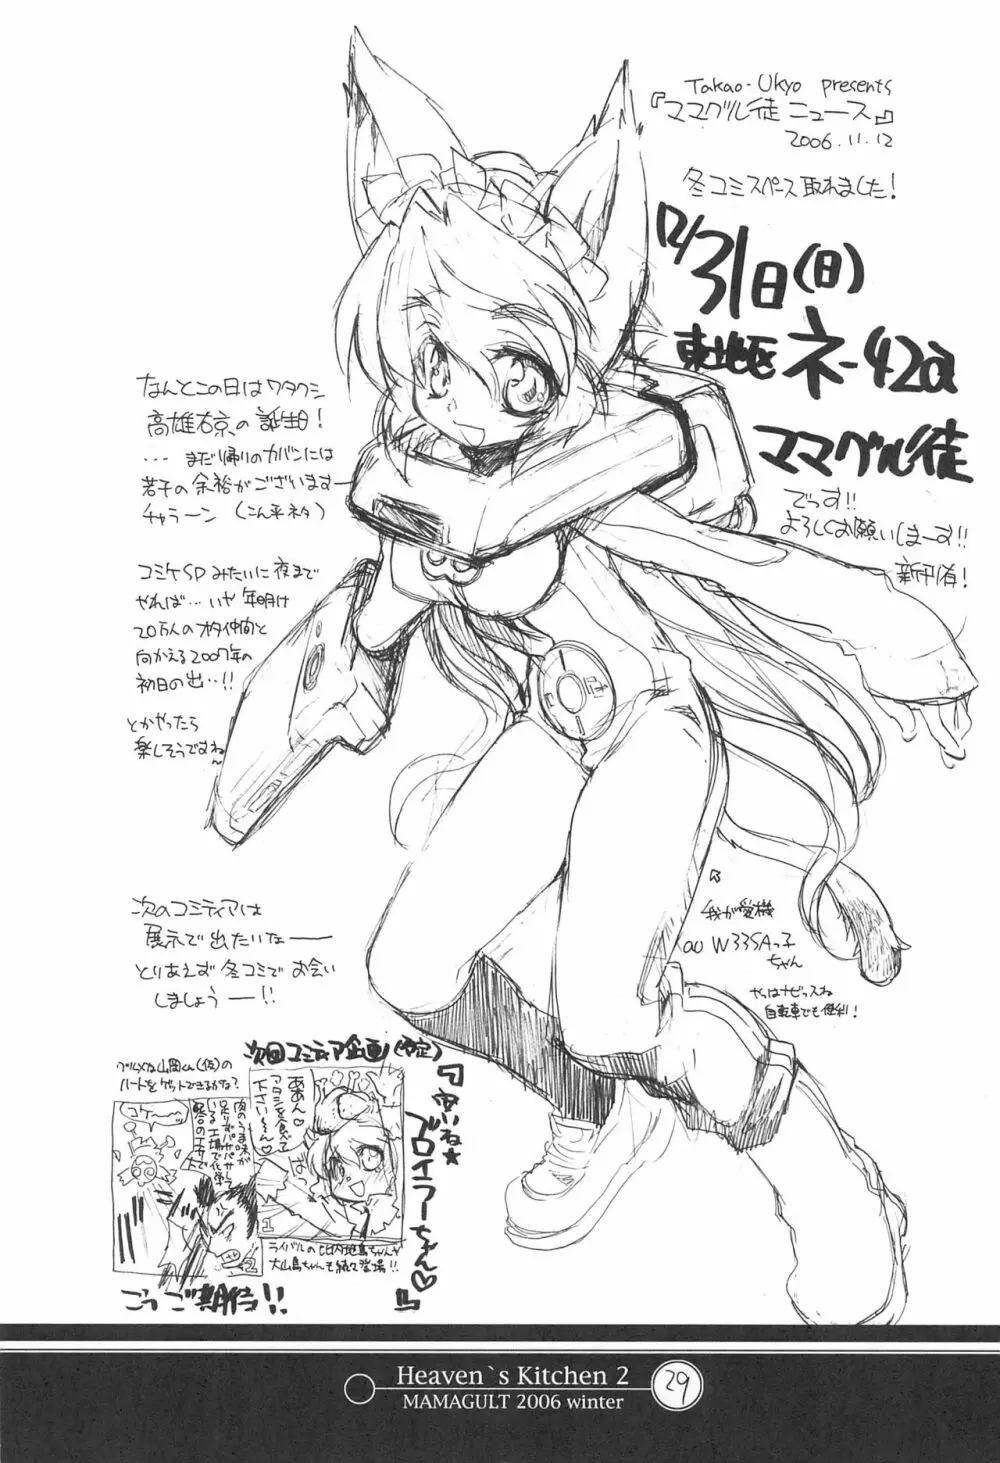 Takao-Ukyo presents
『ママグル徒 ニュース』
2006.11.12
冬コミスペース取れました!
12/31日(日)
東地区 ネ-42a
ママグル徒
でっす!!
よろしくお願いしまーす!!
新刊有!
なんとこの日はワタクシ
高雄右京の誕生日!
... まだ帰りのカバンには
若干の余裕がございますー
チャラーン (こん平ネタ)
コミケSPみたいに夜まで
やれば…いや年明け
20万人のオタ仲間と
向かえる2007年の
初日の出…!!
とかやったら
楽しそうですねん
我が愛機
au W33SAっ子
ちゃん
やっぱナビっスね
自転車でも便利!
次のコミティアは
展示で出たいなー
とりあえず冬コミでお会い
しましょうー!!
次回コミティア企画(予定)
『萌いね★
ブロイラーちゃん♡』
グルメな山岡くん(仮)の
ハートをゲットできるかな?
ああん♡
アタシを食べて
下さい〜ん♡
1
肉のうま味が
足りずパサパサして
いる 工場で化学
配合のエサで
コケー
2
ライバルの比内地鶏ちゃんや
大山鳥ちゃんも続々登場!!
ごっご期待!!
Heaven`s Kitchen 2
MAMAGULT 2006 winter
29